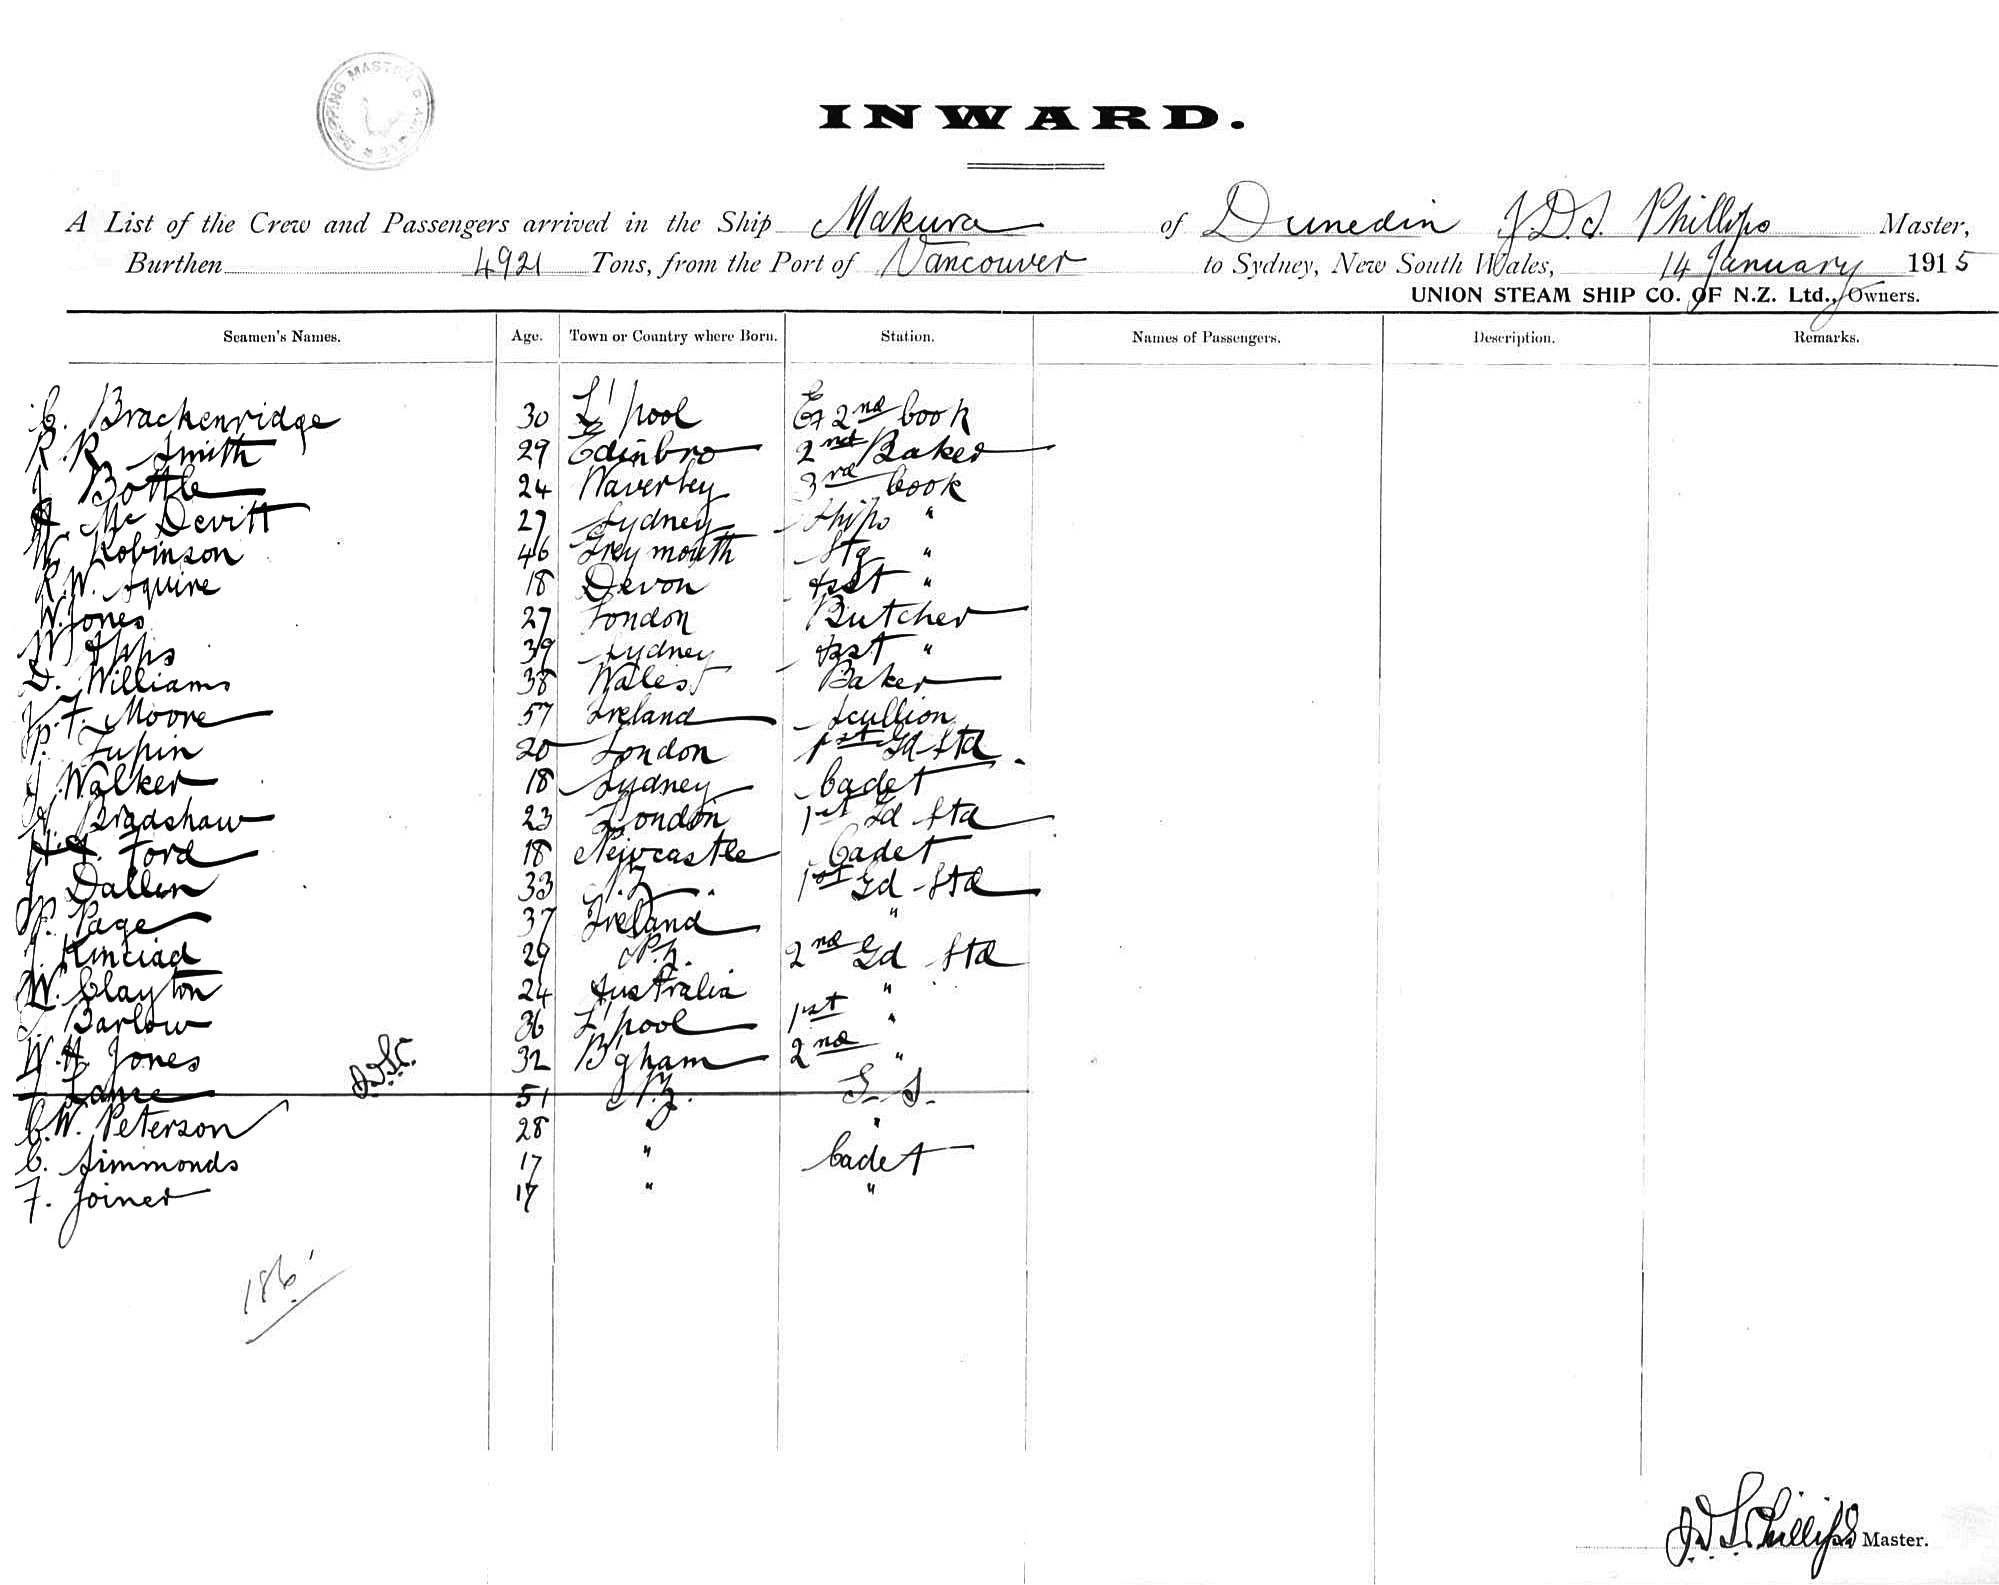 SHIPPING MASTER'S
INWARD.
A List of the Crew and Passengers arrived in the Ship Makura of Dunedin J.D.S. Phillips Master,
Burthen 4921 Tons, from the Port of Vancouver to Sydney, New South Wales, 14 January 1915
UNION STEAM SHIP CO. OF N.Z. Ltd., Owners.
Seamen's Names. Age. Town or Country where Born. Station. Names of Passengers. Description. Remarks.
C. Brackenridge 30 L'pool 2nd Cook
R.R. Smith 29 Edinbro 2nd Baker
J. Bottle 24 Waverley 3rd Cook
H. McDevitt 27 Sydney Ships "
W. Robinson 46 Greymouth Stg "
R.W. Squire 18 Devon Asst "
W. Jones 27 London Butcher
W. Apps 39 Sydney Asst "
D. Williams 38 Wales Baker
J.F. Moore 57 Ireland Scullion
P. Lupin 20 London 1st Gd Std
J. Walker 18 Sydney Cadet
Bradshaw 23 London 1st Gd Std
H.A. Ford 18 Newcastle Cadet
J. Dallen 33 N.Z. 1st Gd Std
P. Page 37 Ireland "
J. Kinciad 29 N.Z. 2nd Gd Std
W. Clayton 24 Australia "
J. Barlow 36 L'pool 1st "
W.H. Jones 32 B'gham 2nd "
Lane 51 N.Z. S.S.
C.W. Peterson 28 " "
C. Simmonds 17 " Cadet
F. Joiner 17 " "
186
J.D.S. Phillips Master.